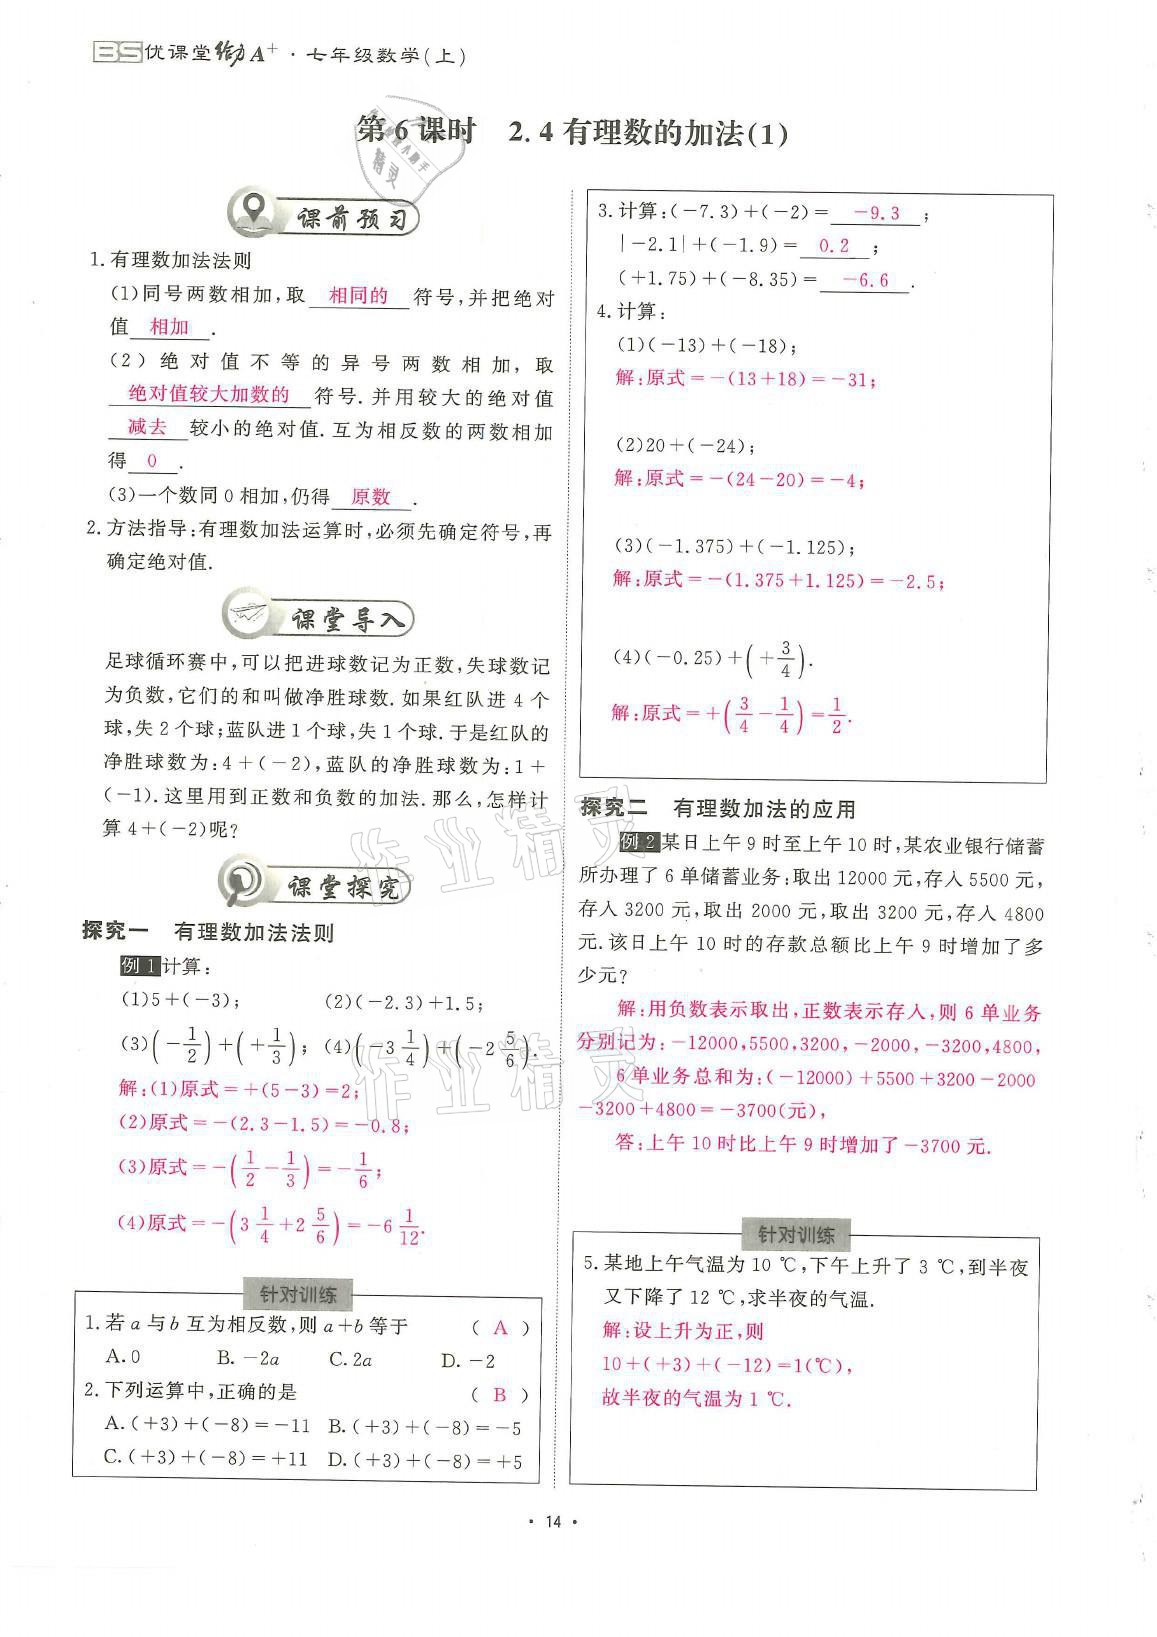 BS优课堂给力A⁺·七年级数学(上)
第6课时 2.4有理数的加法(1)
课前预习
1.有理数加法法则
(1)同号两数相加,取 相同的 符号,并把绝对
值 相加 .
(2)绝对值不等的异号两数相加,取
绝对值较大加数的 符号.并用较大的绝对值
减去 较小的绝对值.互为相反数的两数相加
得 0 .
(3)一个数同0相加,仍得 原数 .
2.方法指导:有理数加法运算时,必须先确定符号,再
确定绝对值.
课堂导入
足球循环赛中,可以把进球数记为正数,失球数记
为负数,它们的和叫做净胜球数.如果红队进4个
球,失2个球;蓝队进1个球,失1个球.于是红队的
净胜球数为:4+(-2),蓝队的净胜球数为:1+
(-1).这里用到正数和负数的加法.那么,怎样计
算4+(-2)呢?
课堂探究
探究一 有理数加法法则
例1 计算:
(1)5+(-3); (2)(-2.3)+1.5;
(3)(-1/2)+(+1/3); (4)(-3 1/4)+(-2 5/6).
解:(1)原式=+(5-3)=2;
(2)原式=-(2.3-1.5)=-0.8;
(3)原式=-(1/2-1/3)=-1/6;
(4)原式=-(3 1/4+2 5/6)=-6 1/12.
针对训练
1.若a与b互为相反数,则a+b等于 ( A )
A.0 B.-2a C.2a D.-2
2.下列运算中,正确的是 ( B )
A.(+3)+(-8)=-11 B.(+3)+(-8)=-5
C.(+3)+(-8)=+11 D.(+3)+(-8)=+5
3.计算:(-7.3)+(-2)= -9.3 ;
|-2.1|+(-1.9)= 0.2 ;
(+1.75)+(-8.35)= -6.6 .
4.计算:
(1)(-13)+(-18);
解:原式=-(13+18)=-31;
(2)20+(-24);
解:原式=-(24-20)=-4;
(3)(-1.375)+(-1.125);
解:原式=-(1.375+1.125)=-2.5;
(4)(-0.25)+(+3/4).
解:原式=+(3/4-1/4)=1/2.
探究二 有理数加法的应用
例2 某日上午9时至上午10时,某农业银行储蓄
所办理了6单储蓄业务:取出12000元,存入5500元,
存入3200元,取出2000元,取出3200元,存入4800
元.该日上午10时的存款总额比上午9时增加了多
少元?
解:用负数表示取出,正数表示存入,则6单业务
分别记为:-12000,5500,3200,-2000,-3200,4800,
6单业务总和为:(-12000)+5500+3200-2000
-3200+4800=-3700(元),
答:上午10时比上午9时增加了-3700元.
针对训练
5.某地上午气温为10 ℃,下午上升了3 ℃,到半夜
又下降了12 ℃,求半夜的气温.
解:设上升为正,则
10+(+3)+(-12)=1(℃),
故半夜的气温为1 ℃.
·14·
作业精灵
作业精灵